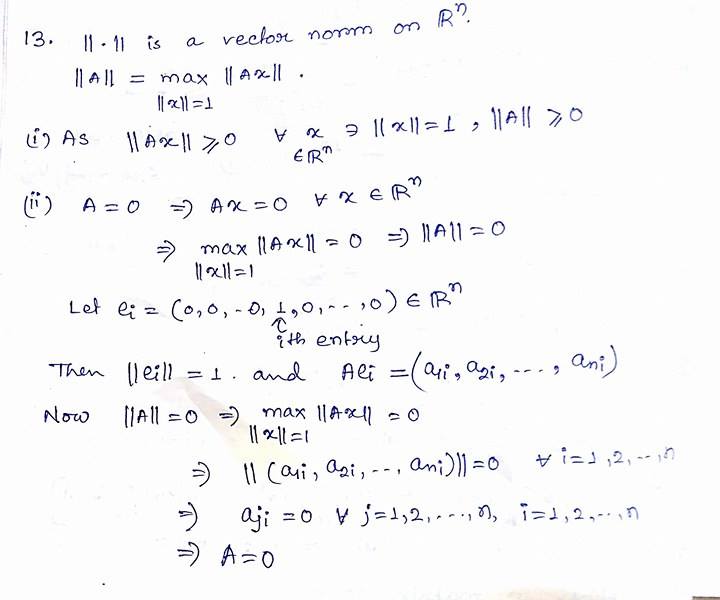 13. ||·|| is a vector norm on ℝⁿ.
||A|| = max ||Ax|| .
||x||=1
(i) As ||Ax|| ⩾ 0 ∀ x ∋ ||x|| = 1 , ||A|| ⩾ 0
∈ℝⁿ
(ii) A = 0 ⇒ Ax = 0 ∀ x ∈ ℝⁿ
⇒ max ||Ax|| = 0 ⇒ ||A|| = 0
||x||=1
Let eᵢ = (0,0,-0,1,0,--,0) ∈ ℝⁿ
↑
ith entry
Then ||eᵢ|| = 1. and Aeᵢ = (a₁ᵢ, a₂ᵢ, ---, aₙᵢ)
Now ||A|| = 0 ⇒ max ||Ax|| = 0
||x||=1
⇒ ||(a₁ᵢ, a₂ᵢ, --, aₙᵢ)|| = 0 ∀ i=1,2,--,n
⇒ aⱼᵢ = 0 ∀ j=1,2,---,n, i=1,2,--,n
⇒ A=0